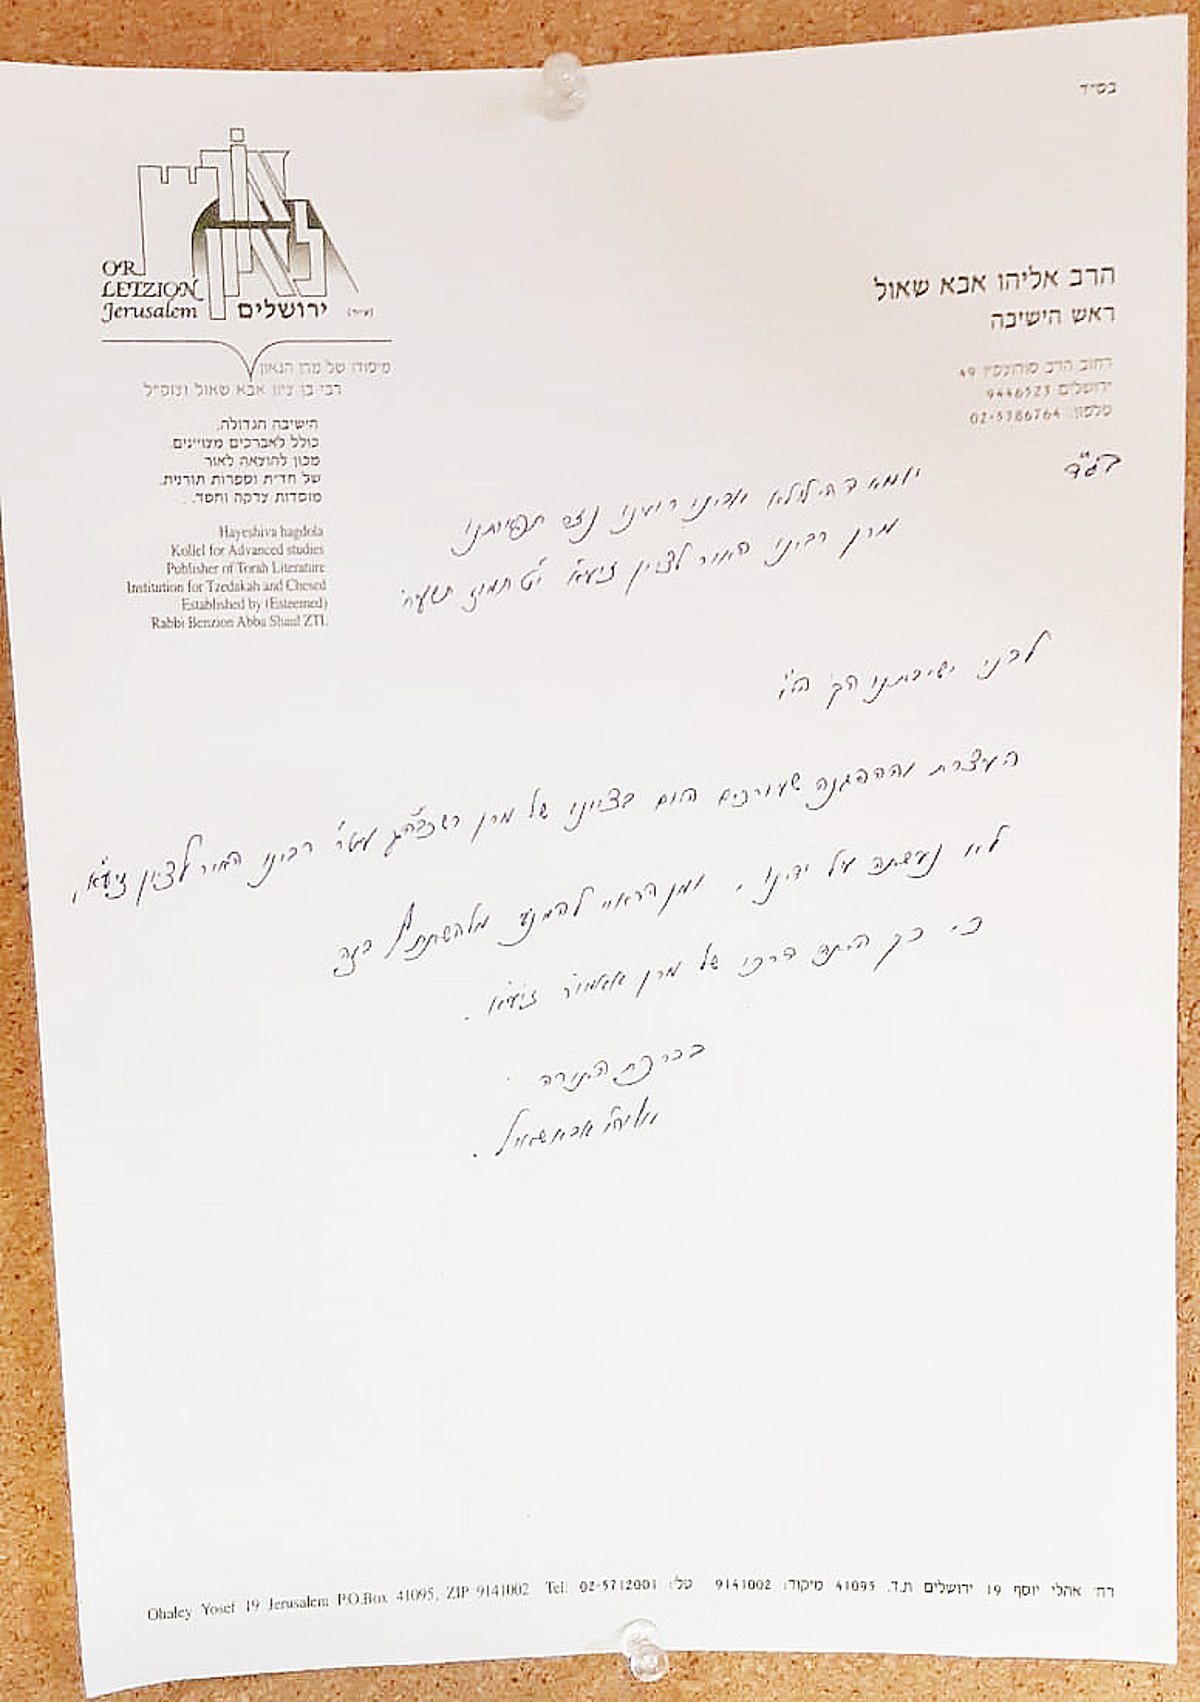 בס״ד
אור לציון
OR
LETZION
Jerusalem
ירושלים (ע״ר)
מיסודו של מרן הגאון
רבי בן ציון אבא שאול זצוק״ל
הישיבה הגדולה.
כולל לאברכים מצויינים
מכון להוצאה לאור
של חז״ת וספרות תורנית.
מוסדות צדקה וחסד.
Hayeshiva hagdola
Kollel for Advanced studies
Publisher of Torah Literature
Institution for Tzedakah and Chesed
Established by (Esteemed)
Rabbi Benzion Abba Shaul ZTL
הרב אליהו אבא שאול
ראש הישיבה
רחוב הרב סורוצקין 49
ירושלים 9446523
טלפון: 02-5386764
בע״ד
יומא דהילולא אבינו רוענו נזם תפארתנו
מרן רבינו האור לציון זיע״א י״ט תמוז תשע״ח
לבני ישיבתנו הק׳ הי״ו
העצרת וההפגנה שעורכים היום בציונו של מרן רשכבה״ג עט״ר רבינו האור לציון זיע״א,
לא נעשתה על ידינו, ומן הראוי להמנע מלהשתתף בזה
כי כך היתה דרכו של מרן אאמו״ר זיע״א.
בברכת התורה
אליהו אבא שאול.
רח׳ אהלי יוסף 19 ירושלים ת.ד. 41095 מיקוד: 9141002 טל: 02-5712001 Ohaley Yosef 19 Jerusalem P.O.Box 41095, ZIP 9141002 Tel: